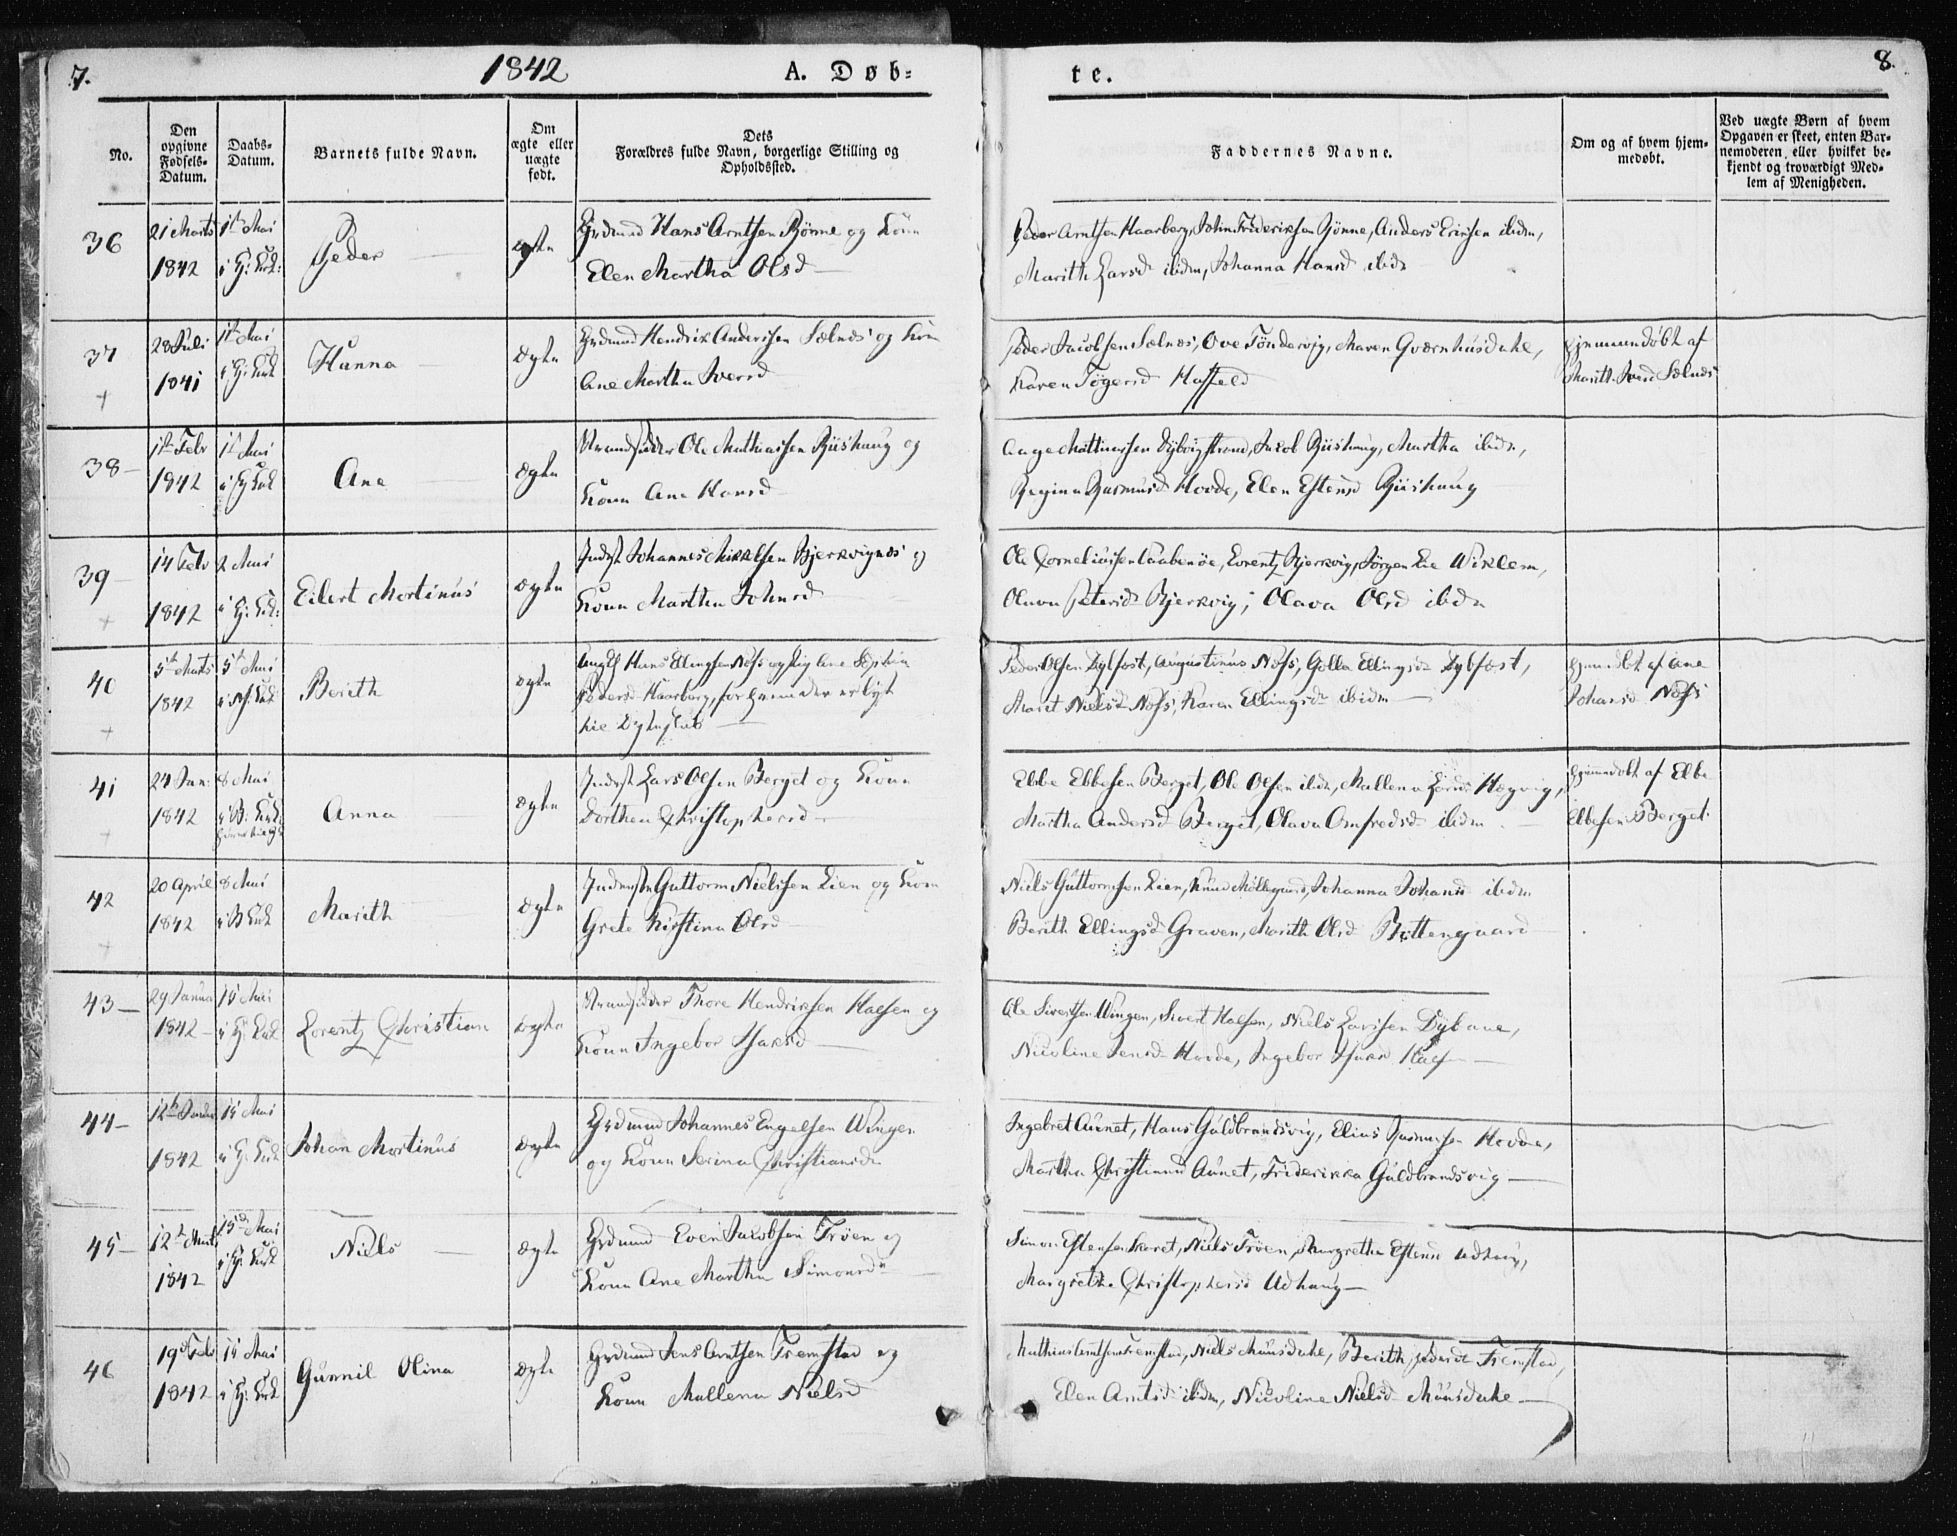 7.
1842
A. Døb=
te.
8.
No.
Den opgivne Fødsels-Datum.
Daabs-Datum.
Barnets fulde Navn.
Om ægte eller uægte født.
Dets Forældres fulde Navn, borgerlige Stilling og Opholdssted.
Faddernes Navne.
Om og af hvem hjemmedøbt.
Ved uægte Børn af hvem Opgaven er skeet, enten Barnemoderen eller hvilket bekjendt og troværdigt Medlem af Menigheden.
36
21 Marts 1842
1ste Mai
Peder
ægte
Hans Arntsen Rønne og Kone
Elen Martha Olsd
Peder Arntsen Haarberg, John Frideriksen Rønne, Anders Erichsen ibidm,
Marith Larsd ibidm, Johanna Hansd ibidm
37
28 Juli 1841
1ste Mai
Hanna
ægte
Hendrik Anderssen Selnæs og Kone
Ane Martha Iversd
Peder Jacobsen Selnæs, Ove Tøndervig, Maren Gværnhusdahl,
Karen Hoffeld
Hjemmedøbt af
Marith Iversd Selnæs
38
1ste Febr 1842
1ste Mai
Ane
ægte
Strandsidder Ole Mathiassen Riishaug og
Kone Ane Hansd
Aage Mathiassen Dybvigstrand, Jacob Riishaug, Martha ibidm,
Regina Rasmusd Hovde, Elen Estensd Riishaug
39
14 Feb 1842
2 Mai
Eilert Mortinus
ægte
Inderst Johannes Mikkelsen Bjerkvignæs og
Kone Martha Johnsd
Ole Corneliussen, Lorentz Bjerkvig, Jørgen Lie Wiklem,
Oluva Petersd Bjerkvig, Olava Olsd ibidm
40
5te Marts 1842
5te Mai
Berith
ægte
Hans Ellingsen Næss og Pige Ane Sophia
Pedersd Haarberg,
Peder Olsen Dybfæst, Augustinus Næss, Golla Ellingsd Dybfæst,
Marit Nielsd Næss, Karen Ellingsd ibidm
Hjemmedøbt af Ane
Johansd Næss
41
24 Jan 1842
8 Mai
Anna
ægte
Inderst Lars Olsen Berget og Kone
Dorthea Christophersd
Ebbe Ebbesen Berget, Ole Olsen ibidm, Mallena Larsd Hegvig,
Martha Andersd Berget, Olava Omfredsd ibidm
Hjemmedøbt af Ebbe
Ebbesen Berget
42
20 April 1842
8 Mai
Marith
ægte
Inderste Guttorm Nielssen Lien og Kone
Grete Kirstina Olsd
Niels Guttormsen Lien, Knud Møllegaard, Johanna Johansd ibidm
Berith Ellingsd Graven, Marith Olsd Bottengaard
43
29 Januar 1842
15 Mai
Lorentz Christian
ægte
Strandsidder Thore Hendriksen Halsen og
Kone Ingebor Isaksd
Ole Sivertsen Wingen, Sivert Halsen, Niels Larssen,
Nicoline Jensd Hovde, Ingebor Isaksd
44
1842
15 Mai
Johan Mortinus
ægte
Johannes Engelsen Wingen
og Kone Serina Christiansd
Ingebret Aunet, Hans Guldbrandsvig, Elias Rasmussen Hovde,
Martha Christiansd Aunet, Friderikka Guldbrandsvig
45
12te Marts 1842
15de Mai
Niels
ægte
Even Jacobsen Trøen og
Kone Ane Martha Simonsd
Simon Estensen, Niels Trøen, Margretha Estensd Udhaug,
Margretha Christophersd Udhaug
46
19de Feb 1842
15 Mai
Gunnil Olina
ægte
Jens Arntsen Fremstad og
Kone Mallena Nielsd
Mathias Arntsen Fremstad, Niels Muusdahl, Berith Pedersd Fremstad,
Elen Arntsd ibidm, Nicoline Nielsd Muusdahl